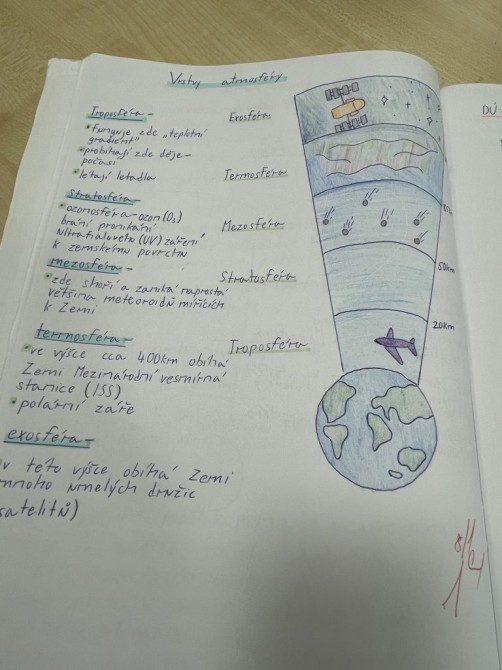 Vrstvy atmosféry
Troposféra -
funguje zde „teplotní
gradient"
probíhají zde děje -
počasí
létají letadla
Stratosféra -
ozonosféra - ozon (O₃)
brání pronikání
ultrafialového (UV) záření
k zemskému povrchu
mezosféra -
zde shoří a zaniká naprostá
většina meteoroidů mířících
k Zemi
termosféra -
ve výšce cca 400km obíhá
Zemi Mezinárodní vesmírná
stanice (ISS)
polární záře
exosféra -
v této výšce obíhá Zemi
mnoho umělých družic
satelitů)
Exosféra
Termosféra
Mezosféra
Stratosféra
Troposféra
50km
20km
DÚ